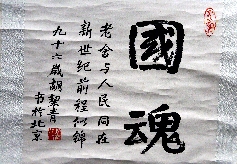 國魂
老舍与人民同在
新世纪前程似錦
九十六歲胡絜青
书於北京